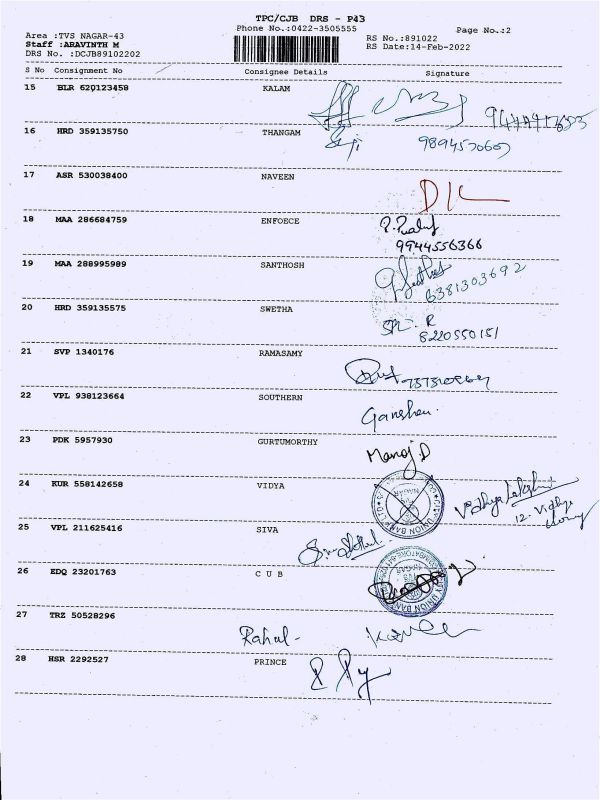 TPC/CJB DRS - P43
Phone No.:0422-3505555
Page No.:2
Area :TVS NAGAR-43
Staff :ARAVINTH M
DRS No. :DCJB89102202
RS No.:891022
RS Date:14-Feb-2022
S No Consignment No Consignee Details Signature
15 BLR 620123458 KALAM
16 HRD 359135750 THANGAM
17 ASR 530038400 NAVEEN
18 MAA 286684759 ENFOECE
9944556366
19 MAA 288995989 SANTHOSH
6381303692
20 HRD 359135575 SWETHA
R
8220550151
21 SVP 1340176 RAMASAMY
22 VPL 938123664 SOUTHERN
Ganeshan.
23 PDK 5957930 GURTUMORTHY
Manoj D
24 KUR 558142658 VIDYA
Vidhya Lakshmi
12. Vidhya
25 VPL 211625416 SIVA
26 EDQ 23201763 C U B
27 TRZ 50528296
Rahul-
28 HSR 2292527 PRINCE